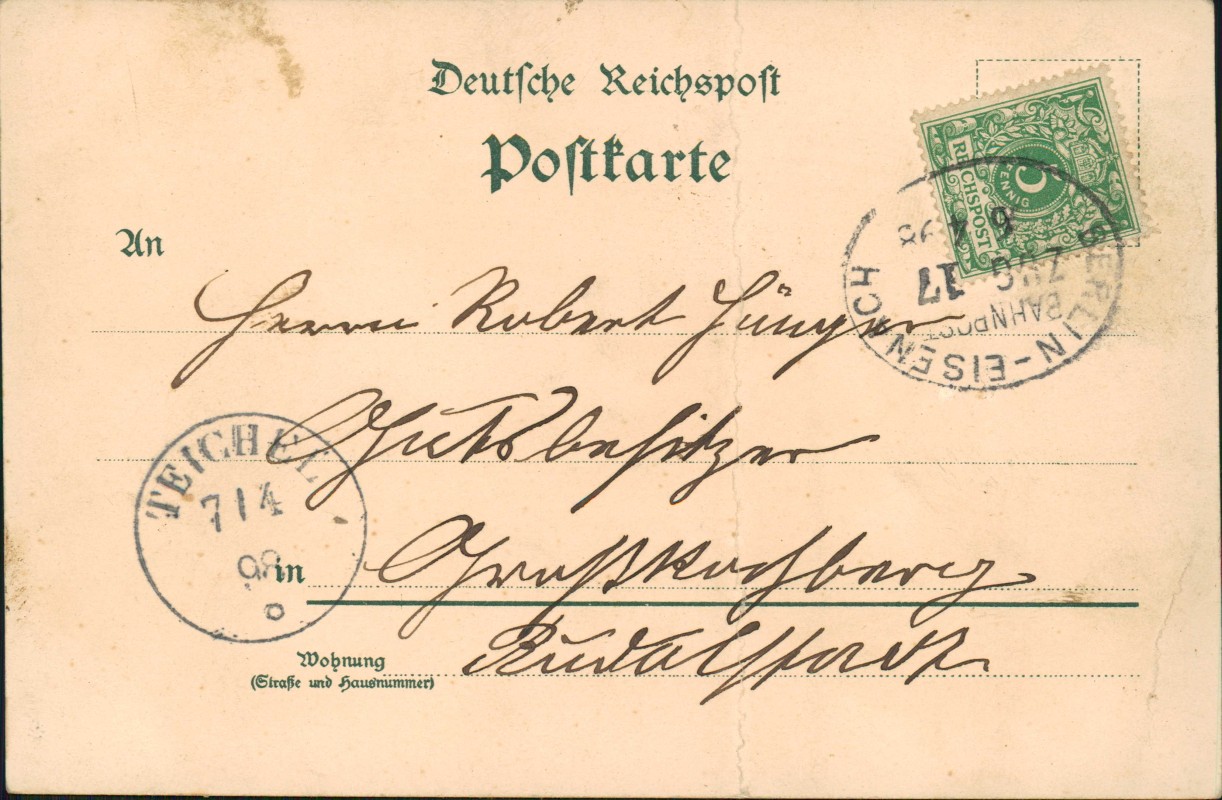 Deutsche Reichspost
Postkarte
5
PFENNIG
REICHSPOST
BERLIN-EISENACH
BAHNPOST
ZUG 17
6 4 98
An
Herrn Robert Jünger
Gutsbesitzer
TEICHEL
7/4
98
in Großkochberg
Rudolstadt
Wohnung
(Straße und Hausnummer)